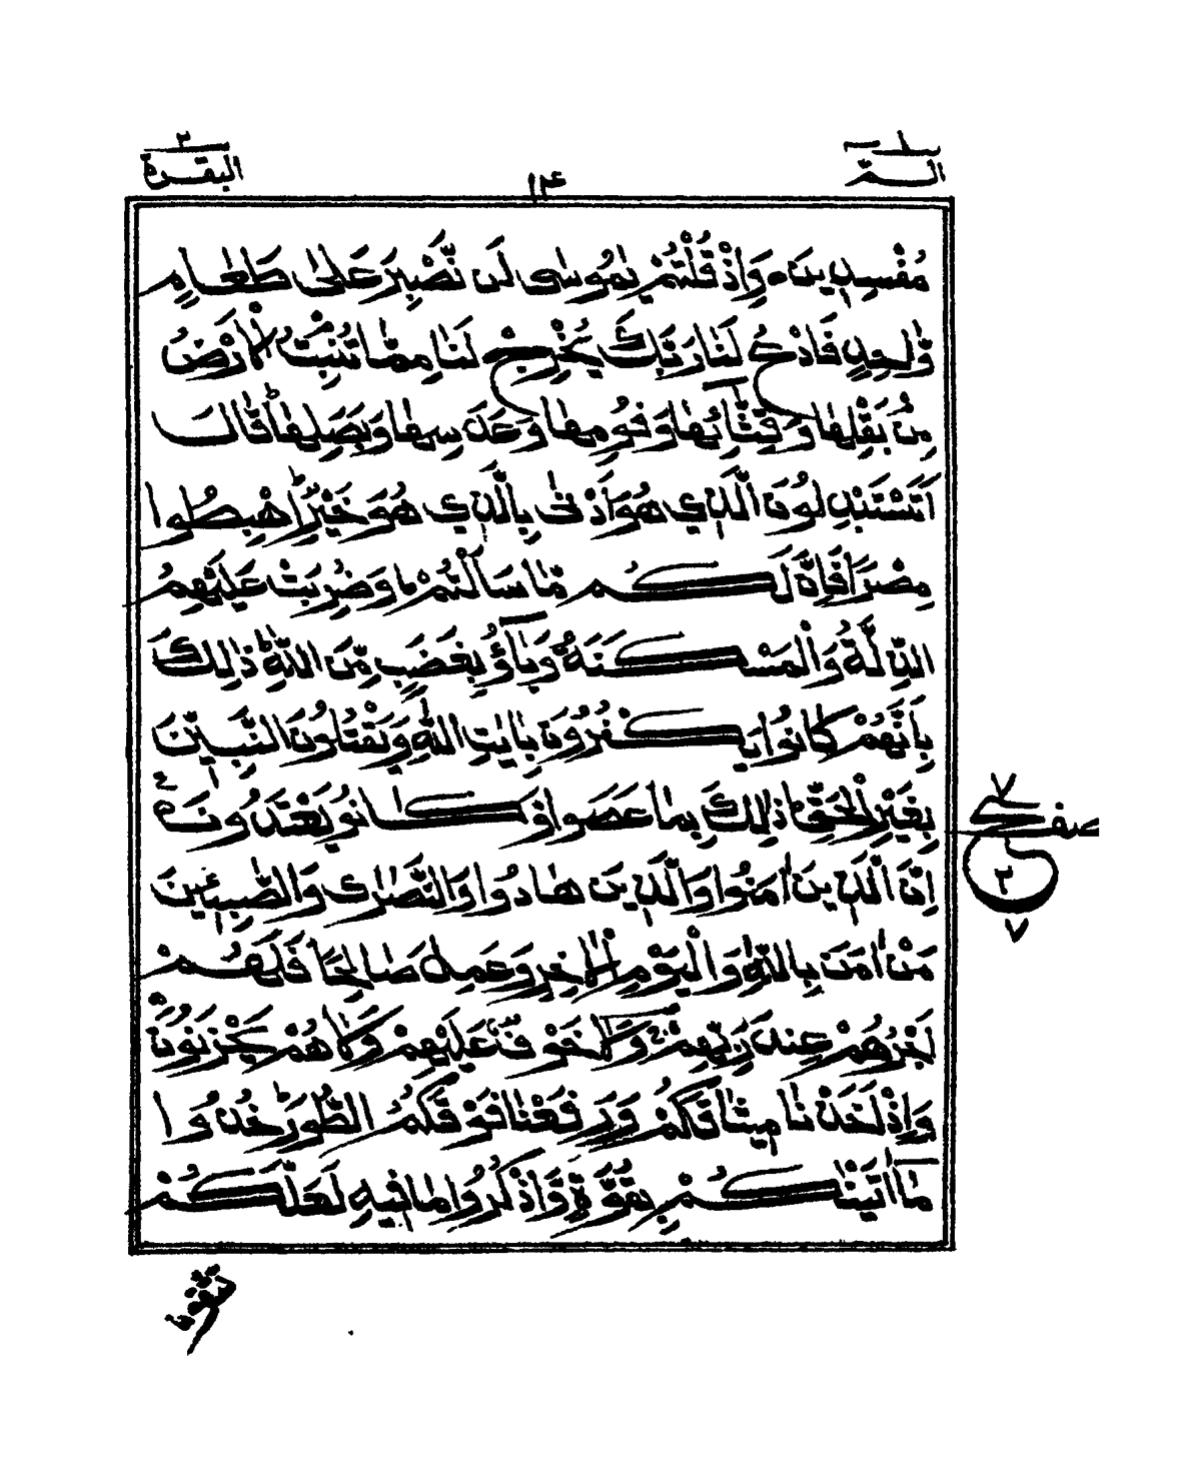 الٓمّٓ ١
١٤
البقرة ٢
مُفْسِدِينَ وَاِذْ قُلْتُمْ يٰمُوسٰى لَن نَّصْبِرَ عَلٰى طَعَامٍ
وَّاحِدٍ فَادْعُ لَنَا رَبَّكَ يُخْرِجْ لَنَا مِمَّا تُنْبِتُ الْاَرْضُ
مِنْۢ بَقْلِهَا وَقِثَّآئِهَا وَفُومِهَا وَعَدَسِهَا وَبَصَلِهَا ؕ قَالَ
اَتَسْتَبْدِلُونَ الَّذِي هُوَ اَدْنٰى بِالَّذِي هُوَ خَيْرٌ ؕ اِهْبِطُوا
مِصْرًا فَاِنَّ لَكُم مَّا سَاَلْتُمْ ؕ وَضُرِبَتْ عَلَيْهِمُ
الذِّلَّةُ وَالْمَسْكَنَةُ وَبَآؤُ بِغَضَبٍ مِّنَ اللّٰهِ ؕ ذٰلِكَ
بِاَنَّهُمْ كَانُوا يَكْفُرُونَ بِاٰيٰتِ اللّٰهِ وَيَقْتُلُونَ النَّبِيّٖنَ
بِغَيْرِ الْحَقِّ ؕ ذٰلِكَ بِمَا عَصَوا وَّكَانُو يَعْتَدُونَ ۠
اِنَّ الَّذِينَ اٰمَنُوا وَالَّذِينَ هَادُوا وَالنَّصَارٰى وَالصّٰبِـِٕينَ
مَنْ اٰمَنَ بِاللّٰهِ وَالْيَوْمِ الْاٰخِرِ وَعَمِلَ صَالِحًا فَلَهُمْ
اَجْرُهُمْ عِنْدَ رَبِّهِمْ ۚ وَلَا خَوْفٌ عَلَيْهِمْ وَلَا هُمْ يَحْزَنُونَ
وَاِذْ اَخَذْنَا مِيثَاقَكُمْ وَرَفَعْنَا فَوْقَكُمُ الطُّورَ ؕ خُذُوا
مَآ اٰتَيْنٰكُمْ بِقُوَّةٍ وَّاذْكُرُوا مَا فِيهِ لَعَلَّكُمْ
٧
ع
٢
٧
تَتَّقُونَ